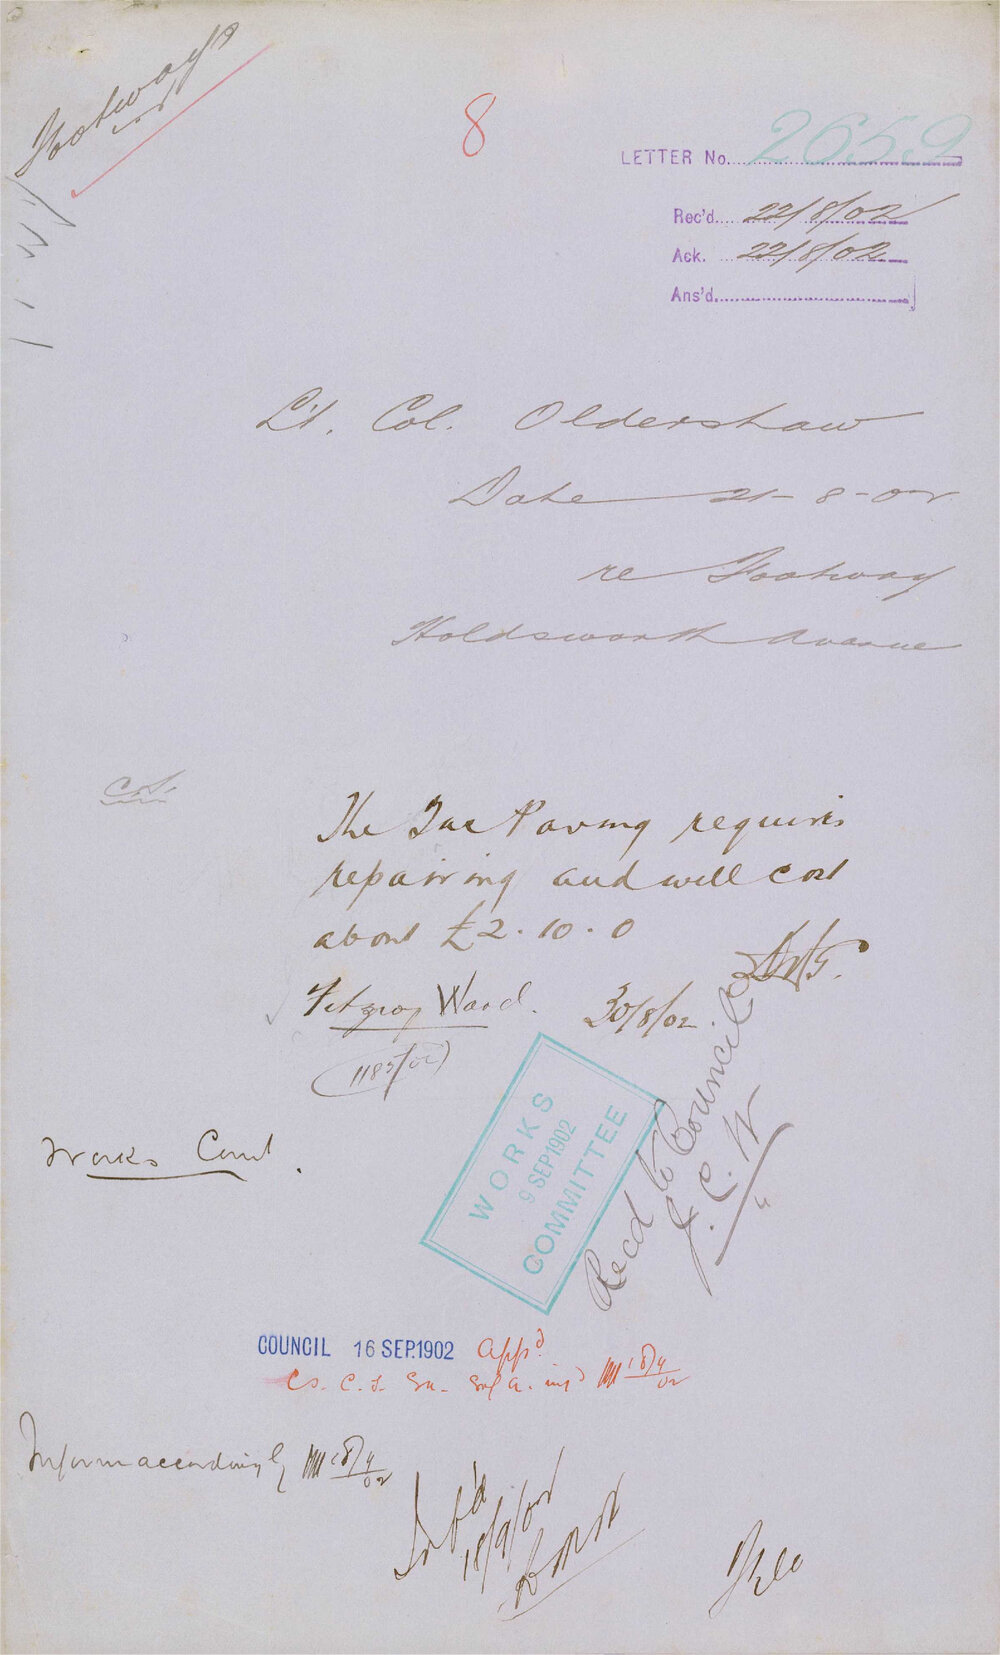 Footways
8
LETTER No. 2659
Rec'd. 22/8/02
Ack. 22/8/02
Ans'd.
Lt. Col. Oldershaw
Date 21-8-02
re Footway
Holdsworth Avenue
C.S.
The Tar Paving requires
repairing and will cost
about £2.10.0
Fitzroy Ward. 30/8/02
(1185/02)
Works Comt.
WORKS
9 SEP 1902
COMMITTEE
Recd to Council
J. C. W
COUNCIL 16 SEP.1902 appd
Inform accordingly
18/9/02